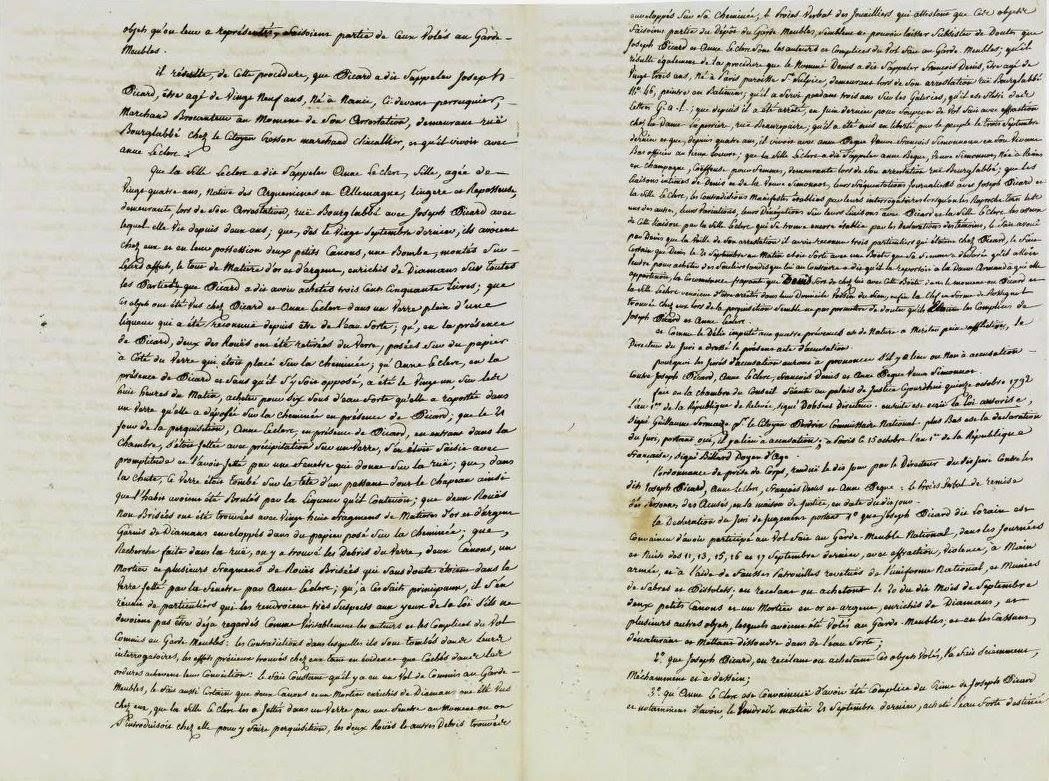 objets qu'on leur a représentés y faisoient partie de ceux volés au Garde-
Meubles.
il résulte, de cette procédure, que Picard a dit s'appeler Joseph
Picard, être agé de vingt neuf ans, né à Nancy, ci-devant perruquier,
Marchand Brocanteur au moment de son arrestation, demeurant rue
Bourglabbé chez le Citoyen Cosson marchand clincallier, et qu'il vivoit avec
anne Leclerc.
Que la fille Leclerc a dit s'appeler Anne Leclerc, fille, agée de
vingt quatre ans, native des Argueminees en Allemagne, lingere et Repasseuse,
demeurante, lors de son arrestation, rue Bourglabbé avec Joseph Picard avec
lequel elle vit depuis deux ans; que, dès le vingt Septembre dernier, ils avoient
chez eux et en leur possession deux petits Canons, une Bombe, montés sur
leurs affuts, le tout de Matière d'or et d'argent, enrichis de Diamans sur toutes
les Parties, que Picard a dit avoir achetés trois Cent Cinquante Livres; que
ces objets ont été vus chez Picard et Anne Leclerc dans un verre plein d'une
liqueur qui a été reconnue depuis être de l'eau forte; qu'en la présence
de Picard, deux des Rouës ont été retirées du verre, posées sur du papier
à côté du verre qui étoit placé sur la cheminée; qu'Anne Leclerc, en la
présence de Picard et sans qu'il s'y soit opposé, a été le vingt un sur les
huit heures du Matin, acheter pour six sous d'eau forte qu'elle a rapportée dans
un verre qu'elle a déposée sur la cheminée en présence de Picard; que le 21
jour de la perquisition, Anne Leclerc, en présence de Picard, en entrant dans la
chambre, s'étoit jettée avec précipitation sur un verre, s'en étoit saisie avec
promptitude et l'avoit jetté par une fenetre qui donne sur la rue; que, dans
la chute, le verre étoit tombé sur la tête d'un passant dont le chapeau ainsi
que l'habit avoient été Brulés par la liqueur qu'il contenoit; que deux Rouës
non Brisées ont été trouvées avec vingt huit fragmens de Matiere d'or et d'argent
Garnis de Diamans enveloppés dans du papier posé sur la Cheminée; que,
Recherche faite dans la rue, on y a trouvé les Débris du verre, deux Canons, un
Mortier et plusieurs fragmens de Rouës Brisées qui sans doute étoient dans le
verre jetté par la fenetre par Anne Leclerc; qu'à ces faits principaux, il s'en
réunit de particuliers qui les rendroient très suspects aux yeux de la loi s'ils ne
devoient pas être déja regardés comme véritablement les auteurs et les complices du vol
commis au Garde Meubles: les contradictions dans lesquelles ils sont tombés dans leurs
interrogatoires, les effets précieux trouvés chez eux tant en évidence que cachés dans les
ordures achevent leur conviction: le fait constant qu'il y a eu un vol de commis au Garde-
Meubles, le fait aussi certain que deux Canons et un Mortier enrichis de Diamans ont été vus
chez eux, que la fille Leclerc les a jettés dans un verre par une fenetre au moment où on
s'introduisoit chez elle pour y faire perquisition, les deux Rouës et autres Débris trouvés
enveloppés sur sa cheminée, le Procès Verbal des Jouailliers qui attestent que ces objets
faisoient partie du dépôt du Garde Meubles, semblent ne pouvoir laisser subsister de doutes, que
Joseph Picard et Anne Leclerc sont les auteurs et complices du vol fait au Garde Meubles; qu'il
résulte également de la procédure que le nommé Denis a dit s'appeler François Denis, être agé de
vingt trois ans, né à Paris paroisse St Sulpice, demeurant lors de son arrestation rue Bourglabbé
N° 46, peintre en Batimens; qu'il a servi pendant trois ans sur les Galeries, qu'il est flétri des
lettres G.a.l.; que depuis il a été arrêté, en juin dernier pour soupçon de vol fait avec effraction
chez la Dame, rue Beaurepaire; qu'il a été mis en liberté par le peuple le trois Septembre
dernier et que, depuis quatre ans, il vivoit avec anne Begue veuve François Simonneau en son vivant
Bas officier au vieux Louvre; que la fille Leclerc a dit s'appeler anne Begue, veuve Simonnot, née à Reims
en champagne, coiffeuse pour femmes, demeurante lors de son arrestation rue Bourglabbé; que les
liaisons intimes de Denis et de la Veuve Simonnot, leurs fréquentations journalières avec Joseph Picard et
la fille Leclerc, les contradictions Manifestes établies par leurs interrogatoires lorsqu'on les rapproche tant les
uns des autres, leurs variations, leurs dénégations sur leurs liaisons avec Picard et la fille Leclerc, les
de cette liaison par la fille Leclerc qui se trouve encore établie par les déclarations des témoins, le fait assuré
par Denis que la veille de son arrestation il avoit reconnu trois particuliers qui étoient chez Picard, le fait
certain que Denis le 21 Septembre au Matin étoit sorti avec une Boëte que sa femme a déclaré qu'il alloit
vendre pour acheter des souliers tandis que lui au contraire a dit qu'il la reportoit à la Dame qui elle
appartenoit, la circonstance frapante que Denis sort de chez lui avec cette Boëte dans le moment où Picard et
la fille Leclerc viennent d'être arrêtés dans leur Domicile voisin du sien, enfin la clef en forme de Rossignol
trouvée chez eux lors de la perquisition semble ne pas permettre de douter qu'ils étoient les complices de
Joseph Picard et Anne Leclerc
et comme le délit imputé aux quatre prévenus est de nature à mériter peine afflictive, le
Directeur du Juri a dressé le présent acte d'accusation
pourquoi les Jurés d'accusation auront à prononcer s'il y a lieu ou non à accusation
contre Joseph Picard, Anne Leclerc, francois Denis et Anne Begue veuve Simonnot.
fait en la chambre du Conseil séante au palais de Justice aujourd'hui quinze octobre 1792
l'an 1er de la République, signé Dobsent Directeur. ensuite est écrit la loi autorise,
signé Guillaume pr. le Citoyen Commissaire National. plus Bas est la déclaration
du Juri, portant oui, il y a lieu à accusation; à Paris le 15 octobre l'an 1er de la République
française, signé Billard Doyen d'age.
l'ordonnance de prise de Corps, rendue le dit jour par le Directeur du dit Juri contre les
dits Joseph Picard, Anne Leclerc, François Denis et Anne Begue. le Procès Verbal de remise
des personnes des accusés, en la maison de Justice, en date du dit jour.
la Déclaration du Juri de Jugement portant 1° que Joseph Picard dit Lorain est
convaincu d'avoir participé au vol fait au Garde-Meuble National, dans les Journées
et Nuits des 11, 13, 15, 16 et 17 Septembre dernier, avec effraction, violence, à Main
armée, et à l'aide de fausses Patrouilles revetues de l'uniforme National, et munies
de Sabres et Pistolets, en recelant ou achetant le 20 du dit mois de Septembre
deux petits Canons et un Mortier en or et argent, enrichis de Diamans, et
plusieurs autres objets, lesquels avoient été volés au Garde-Meubles; et en les cassant,
dénaturant et mettant dissoudre dans de l'eau forte;
2° que Joseph Picard, en recelant ou achetant ces objets volés, l'a fait sciemment,
Méchamment et à dessein;
3° qu'Anne Leclerc est convaincue d'avoir été complice du crime de Joseph Picard
et notamment d'avoir, le vendredi matin 21 Septembre dernier, acheté l'eau forte destinée